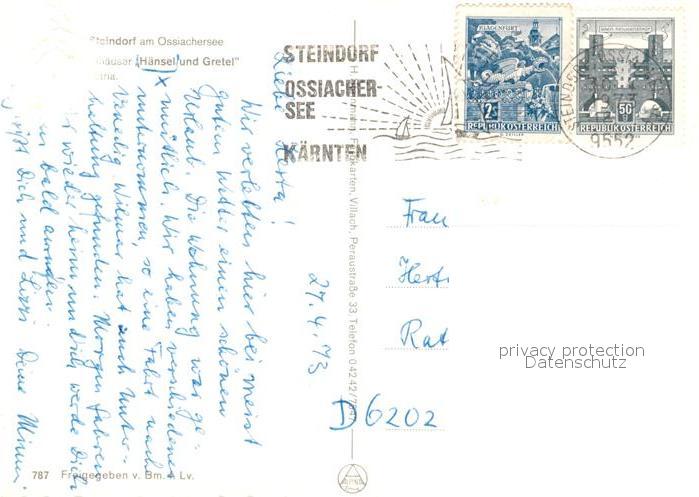 Steindorf am Ossiachersee
"Hänsel und Gretel"
STEINDORF
OSSIACHER-
SEE
KÄRNTEN
KLAGENFURT
2S
REPUBLIK ÖSTERREICH
50g
REPUBLIK ÖSTERREICH
9552
Liebe Herta!
Wir verleben hier bei meist
gutem Wetter einen schönen
Urlaub. Die Wohnung war ge-
mütlich. Wir haben verschiedenes
unternommen, so eine Fahrt nach
Venedig. Wilmar hat auch Unter-
haltung gefunden. Morgen fahren
wir wieder heim und ich werde Dich
bald anrufen.
Dich und Lizzi Deine
27.4.73
Frau
Herta
Rat
D 6202
Farbkarten, Villach, Peraustraße 33, Telefon 04242/
privacy protection
Datenschutz
787 Freigegeben v. Bm. f. Lv.